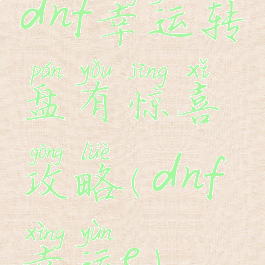 dnf幸运转
pán yǒu jīng xǐ
盘有惊喜
gōng lüè
攻略(dnf
xìng yùn
幸运e)